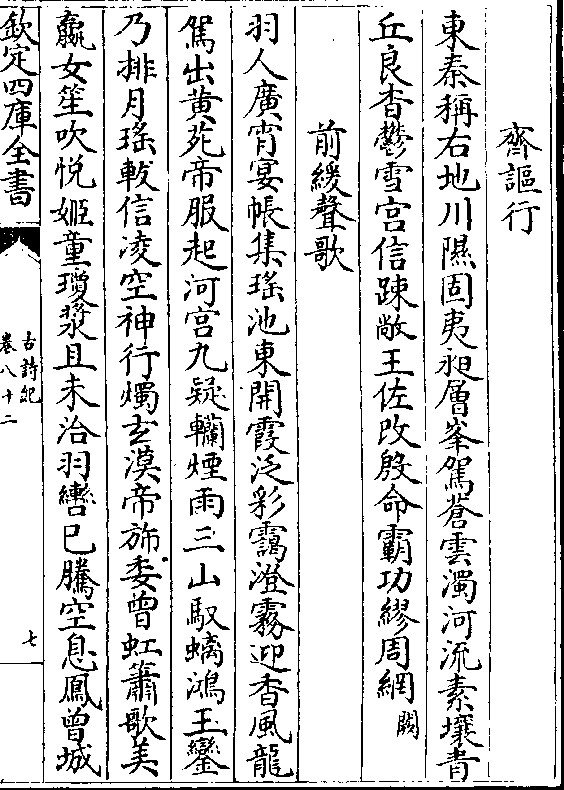 齊謳行
東秦稱右地川隰固夷昶層峯駕蒼雲濁河流素壤青
丘良杳鬱雪宫信踈敞王佐改殷命霸功繆周網闕
前緩聲歌
羽人廣宵宴帳集瑤池東開霞泛彩靄澄霧迎香風龍
駕出黄苑帝服起河宫九疑轥煙雨三山馭螭鴻玉鑾
乃排月瑤軷信凌空神行燭玄漠帝斾委曾虹簫歌美
嬴女笙吹悦姬童瓊漿且未洽羽轡已騰空息鳳曾城
欽定四庫全書
古詩紀
卷八十二
七